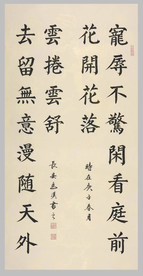 寵辱不驚閑看庭前
花開花落
時在庚子春月
去留無意漫隨天外
雲捲雲舒
長安